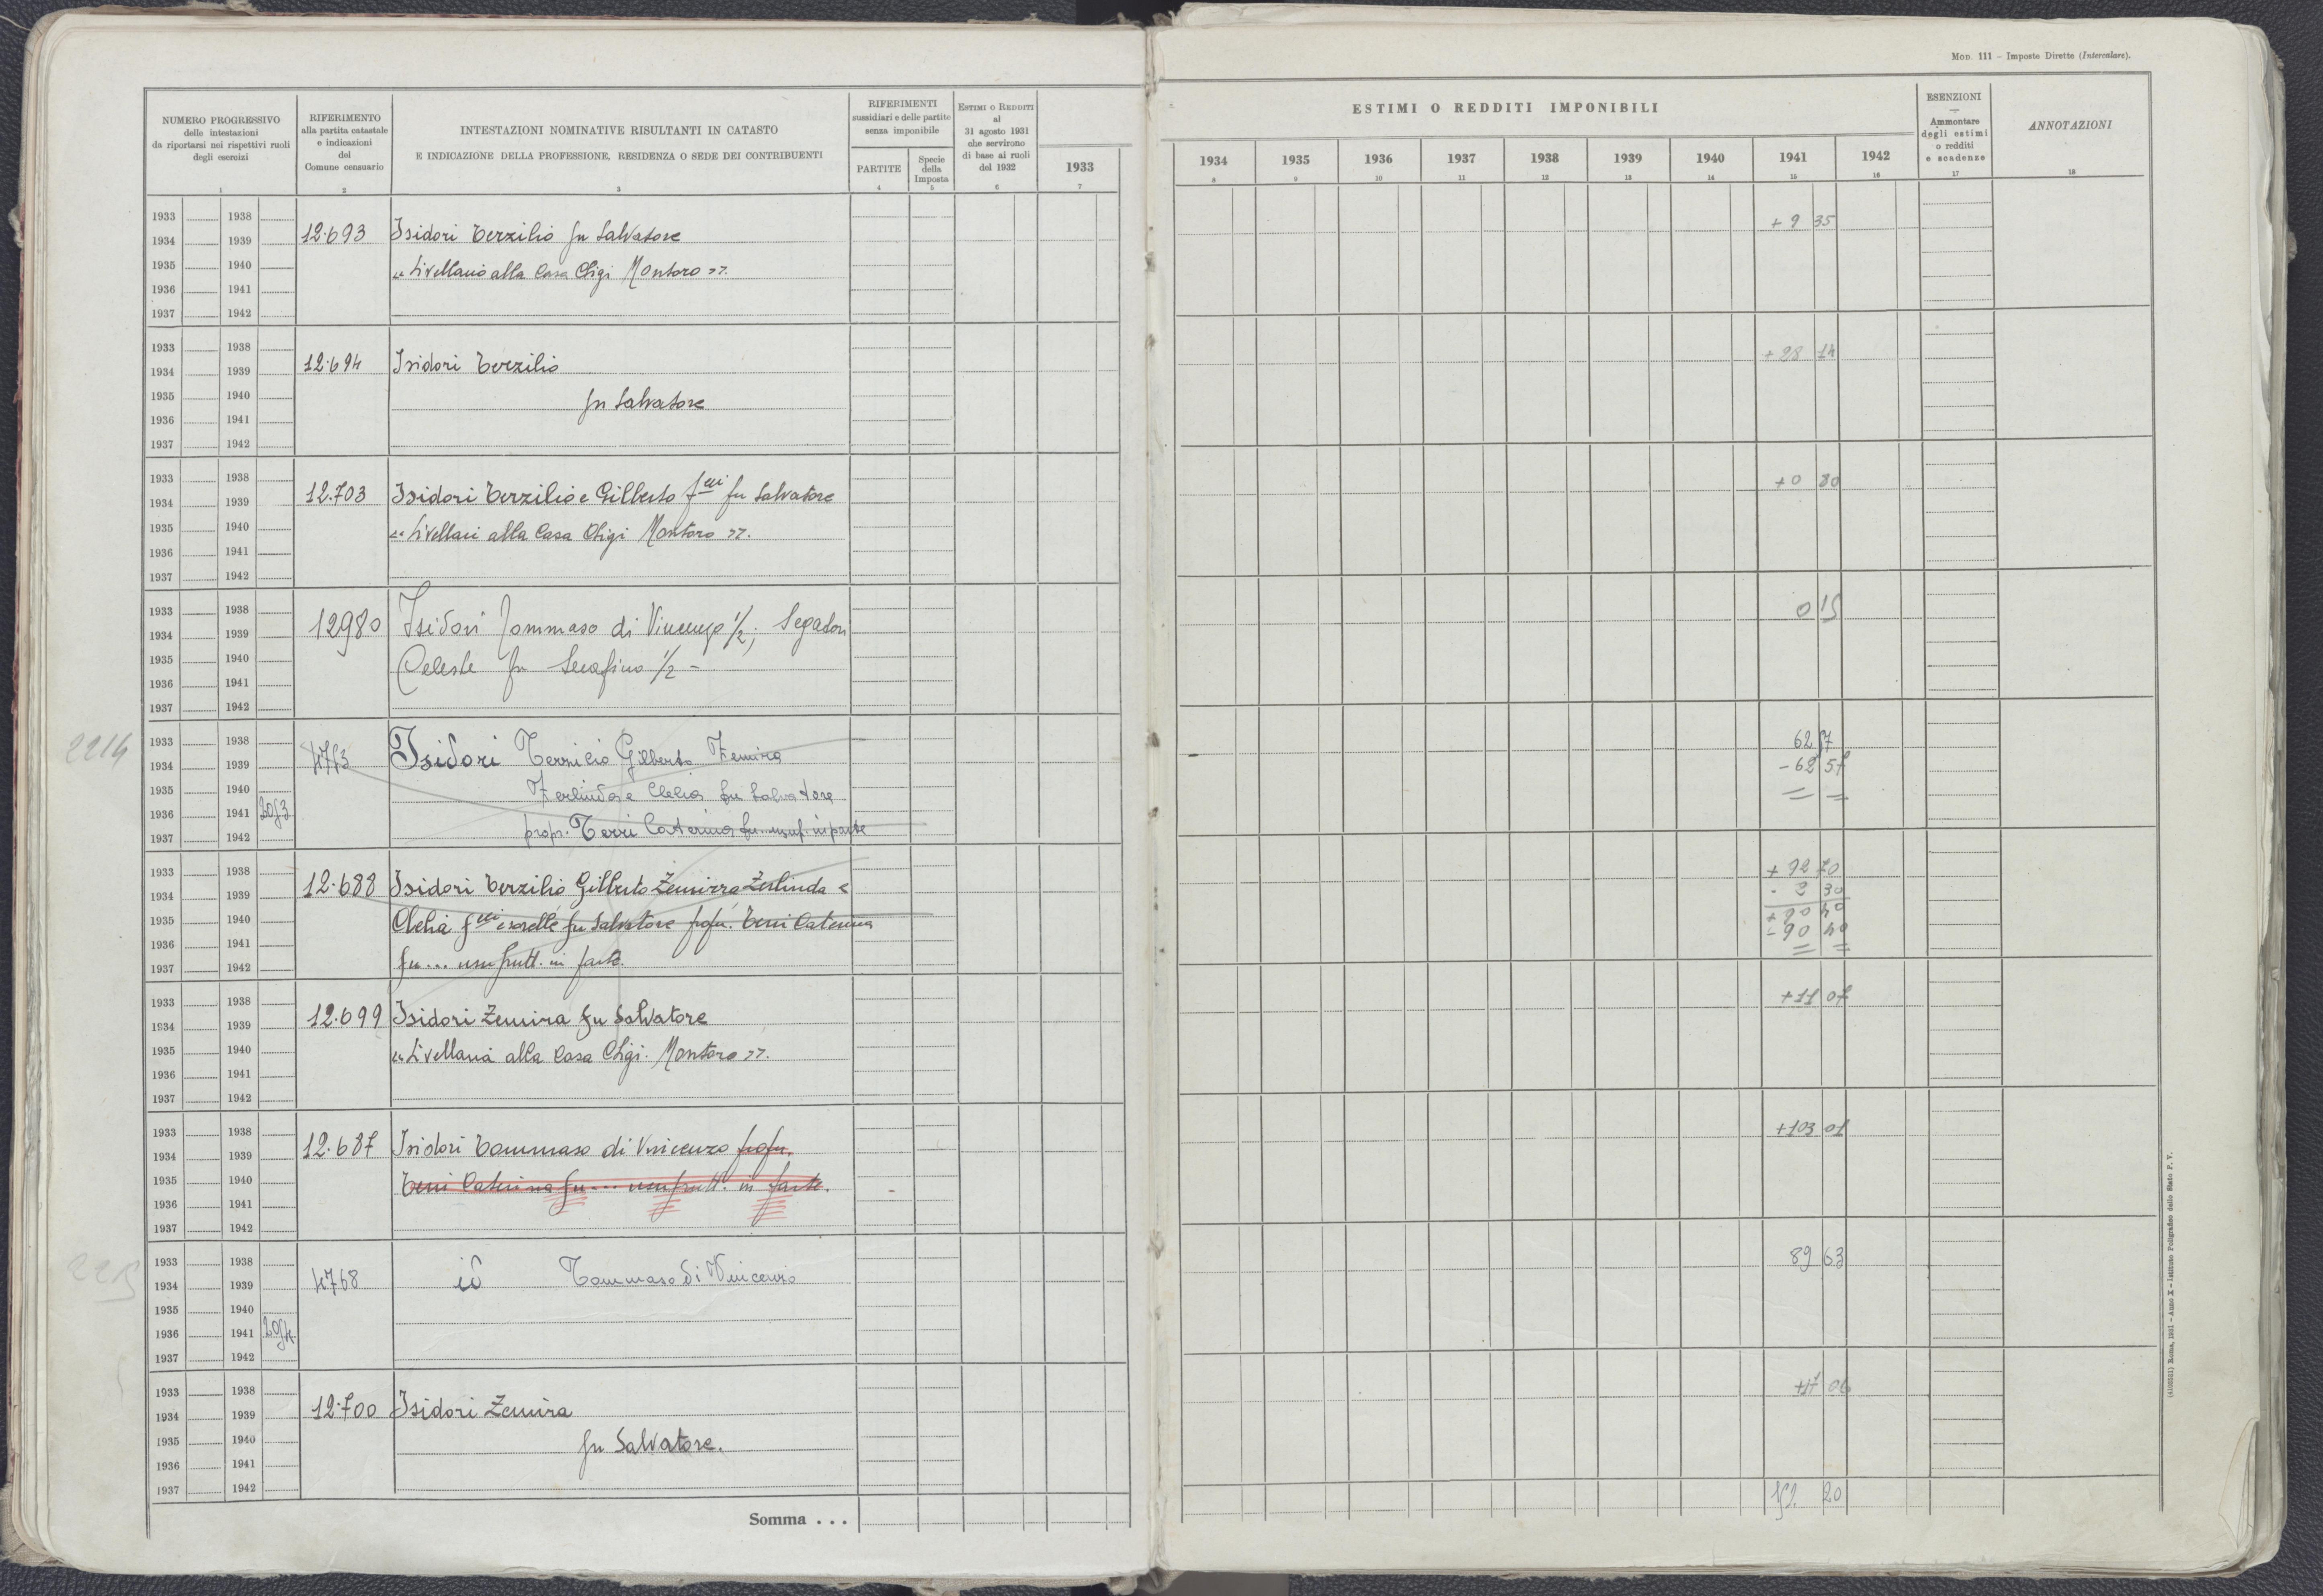 Mod. 111 – Imposte Dirette (Intercalare).
NUMERO PROGRESSIVO
delle intestazioni
da riportarsi nei rispettivi ruoli
degli esercizi
1
RIFERIMENTO
alla partita catastale
e indicazioni
del
Comune censuario
2
INTESTAZIONI NOMINATIVE RISULTANTI IN CATASTO
E INDICAZIONE DELLA PROFESSIONE, RESIDENZA O SEDE DEI CONTRIBUENTI
3
RIFERIMENTI
sussidiari e delle partite
senza imponibile
PARTITE
4
Specie
della
Imposta
5
Estimi o Redditi
al
31 agosto 1931
che servirono
di base ai ruoli
del 1932
6
1933
7
ESTIMI O REDDITI IMPONIBILI
1934 1935 1936 1937 1938 1939 1940 1941 1942
8 9 10 11 12 13 14 15 16
ESENZIONI
—
Ammontare
degli estimi
o redditi
e scadenze
17
ANNOTAZIONI
18
1933 1938
1934 1939
1935 1940
1936 1941
1937 1942
12.693 Isidori Terzilio fu Salvatore + 9 35
"Livellario alla Casa Chigi Montoro".
1933 1938
1934 1939
1935 1940
1936 1941
1937 1942
12.694 Isidori Terzilio + 28 14
fu Salvatore
1933 1938
1934 1939
1935 1940
1936 1941
1937 1942
12.703 Isidori Terzilio e Gilberto f.lli fu Salvatore +0 80
"Livellari alla Casa Chigi Montoro".
1933 1938
1934 1939
1935 1940
1936 1941
1937 1942
12980 Isidori Tommaso di Vincenzo 1/2; Segatori 0 15
Celeste fu Serafino 1/2 -
1933 1938
1934 1939
1935 1940
1936 1941
1937 1942
2214
Isidori Terzilio Gilberto Zemira 62 57
Zerlinda e Clelia fu Salvatore - 62 57
propr. Terri Caterina fu... usuf. in parte
1933 1938
1934 1939
1935 1940
1936 1941
1937 1942
12.688 Isidori Terzilio Gilberto Zemirra Zerlinda e + 92 70
- 2 30
Clelia f.lli e sorelle fu Salvatore propr. Terri Caterina + 90 40
- 90 40
fu ... usufrutt. in parte.
1933 1938
1934 1939
1935 1940
1936 1941
1937 1942
12.699 Isidori Zemira fu Salvatore +11 07
"Livellaria alla Casa Chigi Montoro".
1933 1938
1934 1939
1935 1940
1936 1941
1937 1942
12.687 Isidori Tommaso di Vincenzo propr. +103 01
Terri Caterina fu ... usufrutt. in parte.
1933 1938
1934 1939
1935 1940
1936 1941
1937 1942
2215
4768 id Tommaso di Vincenzo 89 63
1933 1938
1934 1939
1935 1940
1936 1941
1937 1942
12.700 Isidori Zemira
fu Salvatore.
Somma . . . 152 20
(4100551) Roma, 1931 – Anno X – Istituto Poligrafico dello Stato P. V.